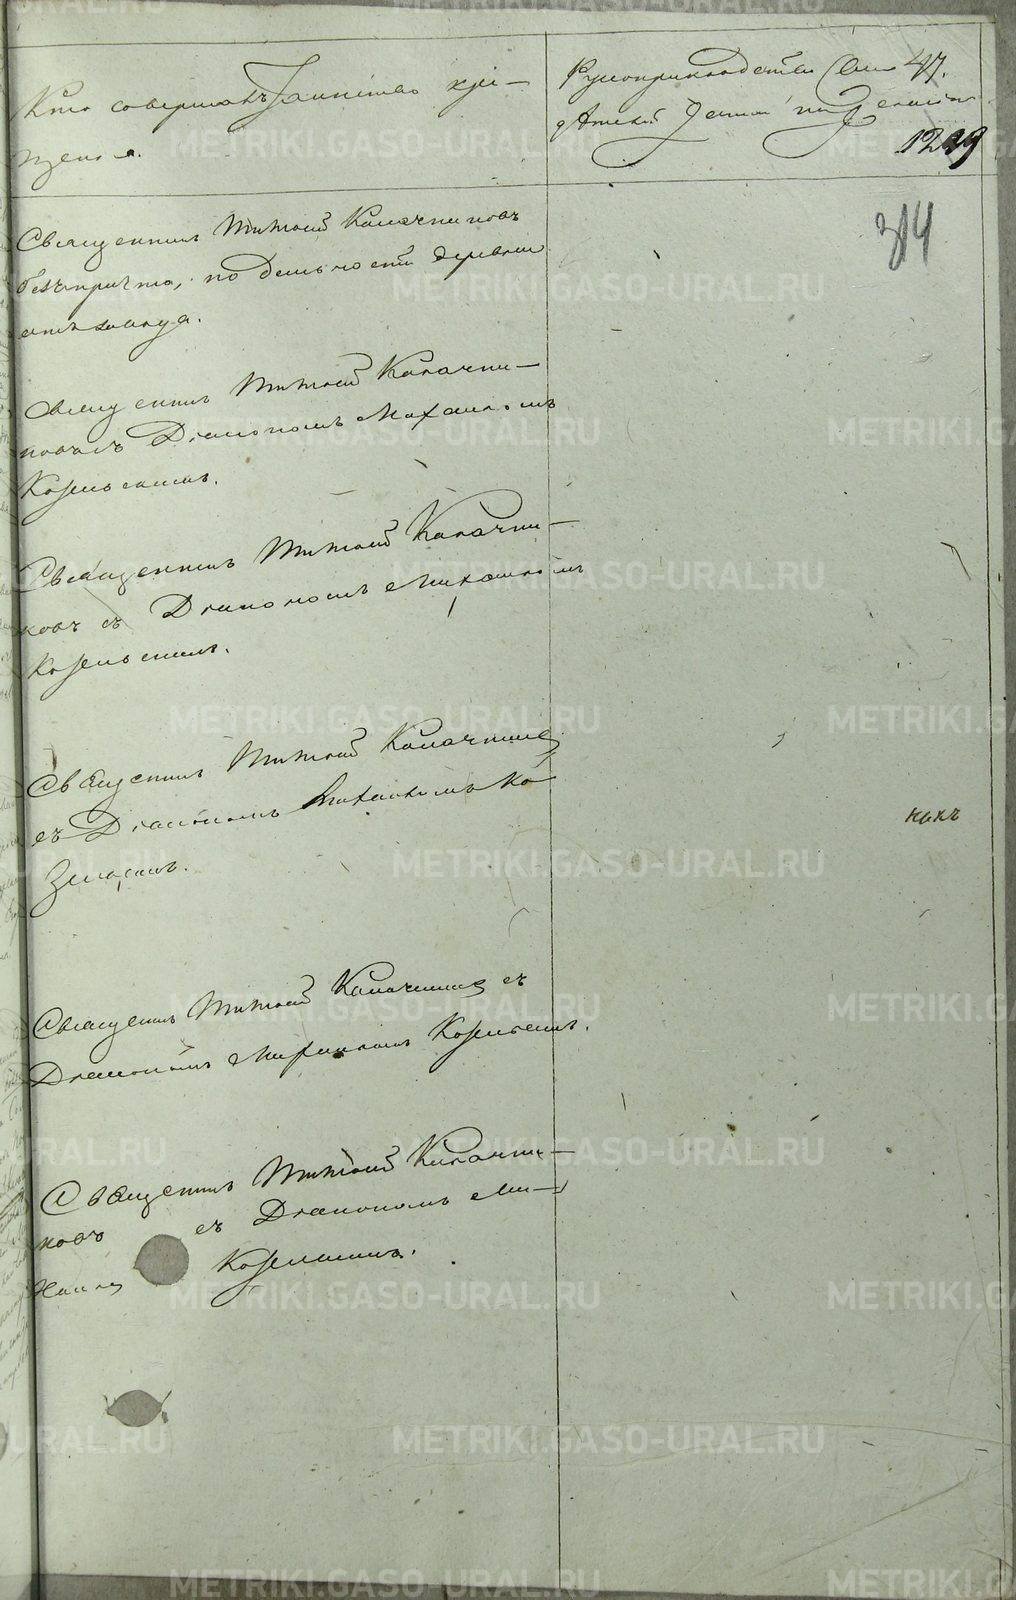 Кто совершалъ Таинство кре-
щенія.
Рукоприкладство
47.
1299
314
Священникъ Тимофей Калачниковъ
безъ причта, по дальности деревни
отъ завода.
Священникъ Тимофей Калачни-
ковъ съ Діакономъ Михаиломъ
Козельскимъ.
Священникъ Тимофей Калачни-
ковъ съ Діакономъ Михаиломъ
Козельскимъ.
Священникъ Тимофей Калачников
съ Діакономъ Михаиломъ Ко
зельскимъ.
Священникъ Тимофей Калачников съ
Діакономъ Михаиломъ Козельскимъ.
Священникъ Тимофей Калачни-
ковъ съ Діакономъ Ми-
хаило Козельскимъ.
какъ
METRIKI.GASO-URAL.RU